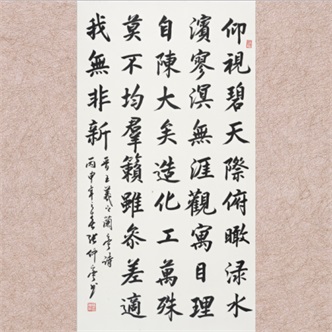 仰視碧天際俯瞰渌水
濱寥溟無涯觀寓目理
自陳大矣造化工萬殊
莫不均羣籟雖叅差適
我無非新
晉王羲之蘭亭詩
丙申年之春張仲亭书